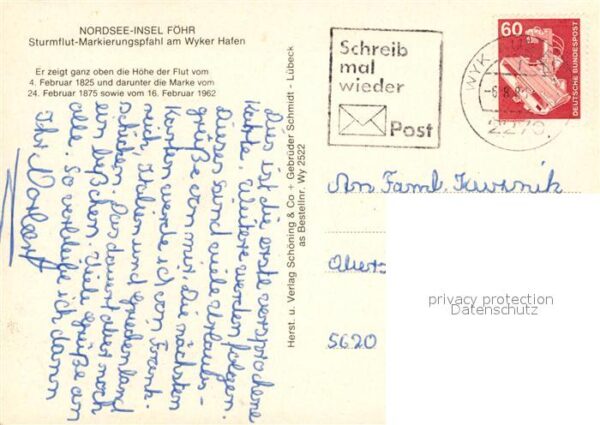 NORDSEE-INSEL FÖHR
Sturmflut-Markierungspfahl am Wyker Hafen
Er zeigt ganz oben die Höhe der Flut vom
4. Februar 1825 und darunter die Marke vom
24. Februar 1875 sowie vom 16. Februar 1962
Dies ist die erste versprochene
Karte. Weitere werden folgen.
Dieses sind viele Urlaubs-
grüße von mir. Die nächsten
Karten werde ich von Frank-
reich, Italien und Griechenland
schicken. Das dauert aber noch
ein bißchen. Viele Grüße an
alle. So verbleibe ich dann
Ihr Norbert
Herst. u. Verlag Schöning & Co + Gebrüder Schmidt - Lübeck
as Bestellnr. Wy 2522
Schreib
mal
wieder
Post
WYK
-6.8.
2270
60
DEUTSCHE BUNDESPOST
An Faml.
5620
privacy protection
Datenschutz